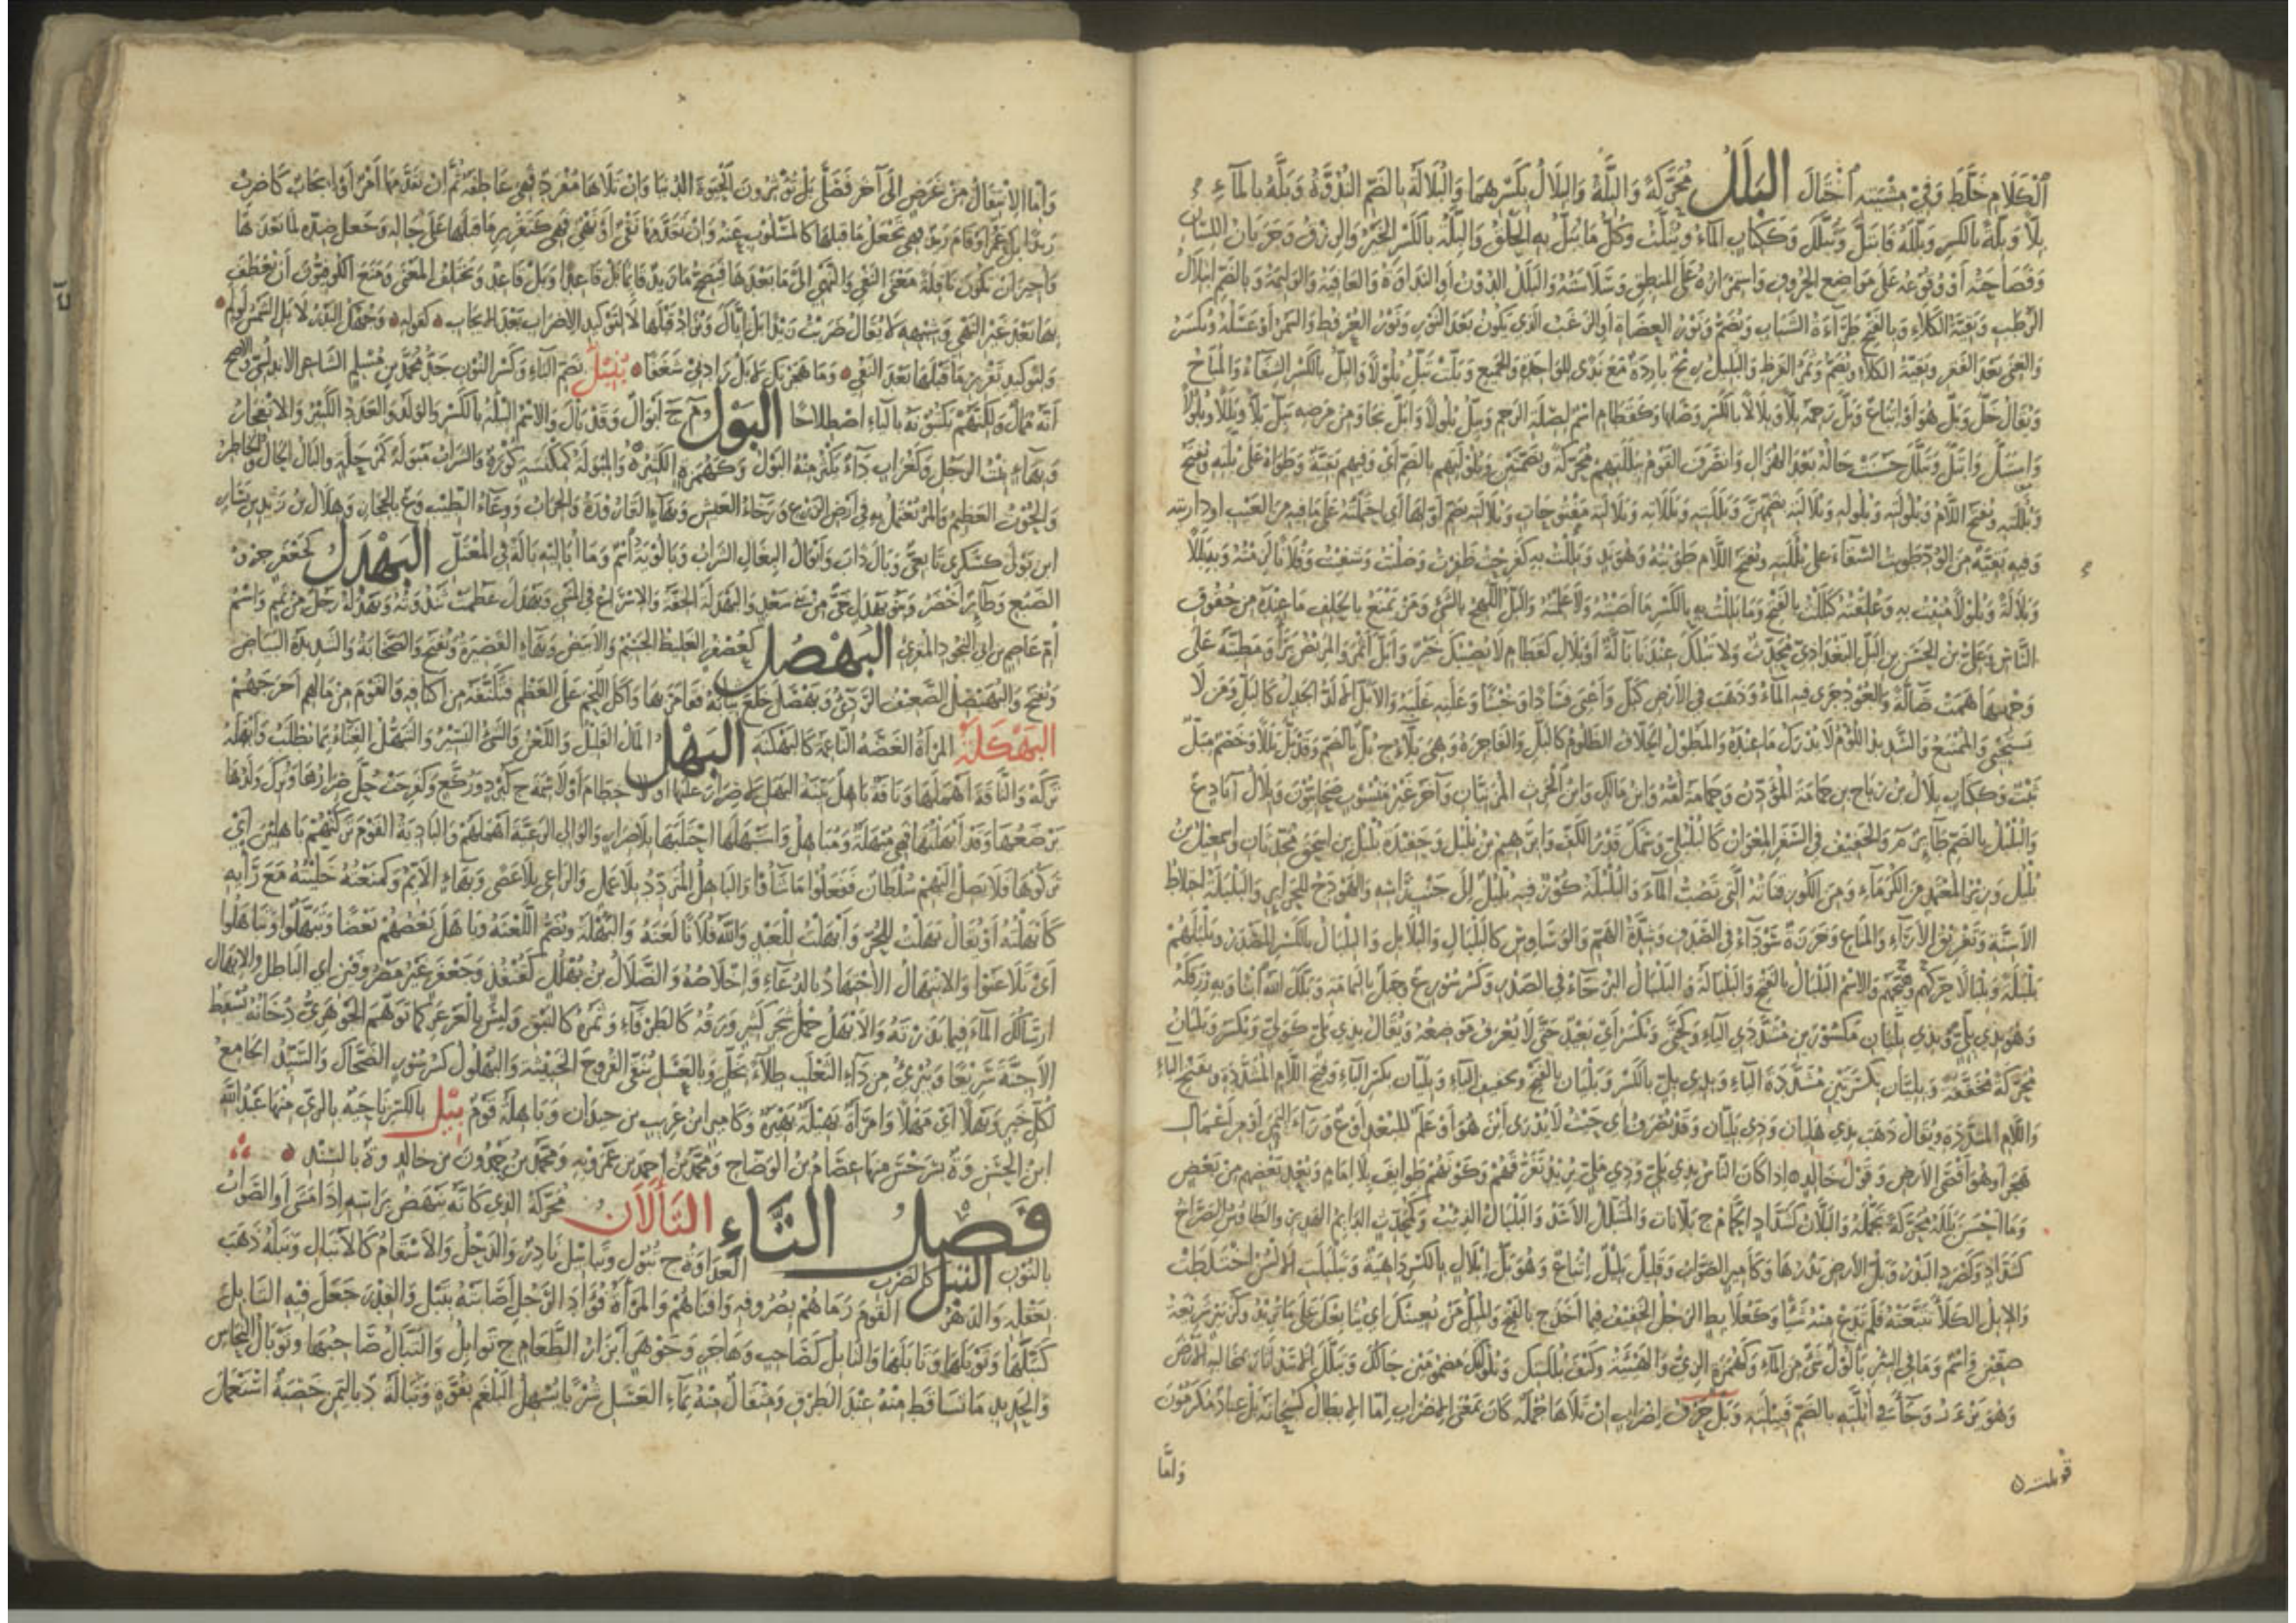 الكلام خلط وفي مشيته اختال البلل محركة والبلة والبلال بكسرهما والبلالة بالضم الندوة وبله بالماء
بلا وبلة بالكسر وبلله فابتل وتبلل وككتاب الماء ويثلث وكل ما يبل به الحلق والبلة بالكسر الخير والرزق وجريان اللسان
وفصاحته أو وقوعه على مواضع الحروف واستمراره على المنطق وسلاسته والبلل الدون أو النداوة والعافية والوليمة وبالضم ابتلال
الرطب وبقية الكلاء وبالفتح طراءة الشباب ويضم ونور العضاه أو الزغب الذي يكون بعد النور ونور العرفط والسمر أو عسله ويكسر
والغنى بعد الفقر وبقية الكلاء ويضم وثمر القرظ والبليل ريح باردة مع ندى للواحدة والجميع وبلت تبل بلولا والبل بالكسر الشفاء والمباح
ويقال حل وبل هو أو اتباع وبل رحمه بلا وبلالا بالكسر وصلها وكقطام اسم لصلة الرحم وبل بلولا وابل نجا ومن مرضه يبل بلا وبللا وبلولا
واستبل وابتل وتبلل حسنت حاله بعد الهزال وانصرف القوم ببللتهم محركة وبضمتين وبلولتهم بالضم أي وفيهم بقية وطواه على بلته ويفتح
وبللته وتفتح اللام وبلولته وبلوله وبلالته بضمهن وبللته وبللاته وبلالته مفتوحات وبلالته بضم اولها أي احتملته على ما فيه من العيب او داريته
وفيه بقية من الود وطويت السقاء على بللته وتفتح اللام طويته وهو ند وبللت به كفرح ظفرت وصليت وشقيت وفلانا لزمته وبه بللا
وبلالة وبلولا منيت به وعلقته كبللت بالفتح وما بللت به بالكسر ما أصبته ولا علمته والبل اللهج بالشيء ومن يمنع بالحلف ما عنده من حقوق
الناس وعلي بن الحسن بن البل البغدادي محدث ولا تبلك عندنا بالة أو بلال كقطام لا يصيبك خير وابل اثمر والمريض برأ ومطيته على
وجهها همت ضالة والعود جرى فيه الماء وذهب في الأرض كبل وأعيى فسادا وخبثا وعليه غلبه والابل الالد الجدل كالبل ومن لا
يستحيي والممتنع والشديد اللؤم لا يدرك ما عنده والمطول الحلاف الظلوم كالبل والفاجرة وهي بلاء ج بل بالضم وقد بل بللا وخصم مبل
ثبت وككتاب بلال بن رباح بن حمامة المؤذن وحمامة أمه وابن مالك وابن الحرث المزنيان وآخر غير منسوب صحابيون وبلال آباد ع
والبلبل بالضم طائر م والخفيف في السفر المعوان كالبلبلي وسمك قدر الكف وابراهيم بن بلبل وحفيده بلبل بن اسحق محدثان واسمعيل بن
بلبل وزير المعتمد من الكرماء ومن الكوز قناته التي تصب الماء والبلبلة كوز فيه بلبل إلى جنب رأسه والهودج للحرائر والبلبلة اختلاط
الأسنة وتفريق الآراء والمتاع وخرزة سوداء في الصدف وشدة الهم والوساوس كالبلبال والبلابل والبلبال بالكسر المصدر وبلبلهم
بلبلة وبلبالا حركهم وهيجهم والاسم البلبال بالفتح والبلبالة والبلبال البرحاء في الصدر وكسرسور ع وجبل باليمامة وبلك الله ابنا وبه رزقكه
وهو بذي بلي وبذي بليان مكسورين مشددي الياء وكحتى ويكسر أي بعيد حتى لا يعرف موضعه ويقال بذي بلي كولي ويكسر وبليان
محركة مخففة وبليان بكسرتين مشددة الياء وبذي بل بالكسر وبليان بالفتح وتخفيف الياء وبليان بكسر الباء وفتح اللام المشددة وبفتح الباء
واللام المشددة ويقال ذهب بذي هليان وذي بليان وقد يصرف أي حيث لا يدرى اين هو أو علم للبعد أو ع وراء اليمن أو من أعمال
هجر أو هو أقصى الأرض وقول خالد إذا كان الناس بذي بلي وذي بلي يريد تفرقهم وكونهم طوايف بلا امام وبعد بعضهم من بعض
وما احسن بلله محركة تجمله والبلان كشداد الحمام ج بلانات والمتبلل الأسد والبلبال الذئب وكمحدث الدايم الهدير والطاوس الصراخ
كشداد وكصرد البذر وبل الأرض بذرها وكأمير الصوت وقليل بليل إتباع وهو بل إبلال بالكسر داهية وتبلبلت الالسن اختلطت
والإبل الكلأ تتبعته فلم تدع منه شيئا وكعلابط الرجل الخفيف فيما أخذ ج بالفتح والمبل من يعييك أي يتابعك على ما تريد وكزبير شريعة
صفين واسم وما في البئر بالول شيء من الماء وكهمزة الزي والهيئة وكيف بللتك وبلولتك مضمومتين حالك وتبلل الأسد آثار بمخالبه الأرض
وهو يزئر وجاء في أبلته بالضم قبيلته وبل حرف إضراب إن تلاها جملة كان معنى الإضراب إما الابطال كسبحانه بل عباد مكرمون
قوبلت
واما
وأما الانتقال من غرض إلى آخر فصلى بل تؤثرون الحيوة الدنيا وإن تلاها مفرد فهي عاطفة ثم إن تقدمها أمر أو إيجاب كاضرب
زيدا بل عمرا أو قام زيد بل فهي تجعل ما قبلها كالمسكوت عنه وإن تقدمها نفي أو نهي فهي لتقرير ما قبلها على حاله وجعل ضده لما بعدها
وأجيز أن تكون ناقلة معنى النفي والنهي إلى ما بعدها فيصح ما زيد قائما بل قاعدا وبل قاعد ويختلف المعنى ومنع الكوفيون أن يعطف
بها بعد غير النهي وشبهه لا يقال ضربت زيدا بل إياك وتزاد قبلها لا لتوكيد الإضراب بعد الإيجاب كقوله وجهك البدر لا بل الشمس لو لم
ولتوكيد تقرير ما قبلها بعد النفي وما هجرتك لا بل زادني شغفا بنبل بضم الباء وكسر النون جد محمد بن مسلم الشاعر الاندلسي والأصح
أنه ممال ولكنهم يكتبونه بالياء اصطلاحا البول م ج أبوال وقد بال والاسم البيلة بالكسر والولد والعدد الكثير والانفجار
وبهاء بنت الرجل وكغراب داء يكثر منه البول وكهمزة الكثيره والمبولة كمكنسة كوزه والشراب مبولة كمرحلة والبال الحال والخاطر
والحوت العظيم والمر يعتمل به في أرض الزرع ورخاء العيش وبهاء القارورة والجراب ووعاء الطيب وع بالحجاز وهلال بن زيد بن يسار
ابن بولى كسكرى تابعي وبال ذاب وأبوال البغال السراب وبالويه اسم وما أباليه بالة في المعتل البهدل كجعفر جرو
الضبع وطائر أخضر وبنو بهدل حي من بني سعد والبهدلة الخفة والإسراع في المشي وبهدل عظمت ثندوته وبهدلة رجل من تميم واسم
أم عاصم بن أبي النجود المقرئ البهصل كعصفر الغليظ الجسيم والأبيض وبهاء القصيرة ويفتح والصخابة والشديدة البياض
ويفتح والبهيصل الضعيف الردئ وبهصل خلع ثيابه فقامر بها وأكل اللحم على العظم فتكتفه من أكنافه والقوم من مالهم أخرجهم
البهكلة المرأة الغضة الناعمة كالبهكنة البهل المال القليل واللعن والشيء اليسير والتبهل العناء بما تطلب وأبهله
تركه والناقة أهملها وناقة باهل بينة البهل لا صرار عليها أو لا خطام أو لا سمة ج كبرد وركع وكفرحت حل صرارها وترك ولدها
يرضعها وقد أبهلتها فهي مبهلة ومباهل واستبهلها احتلبها بلا صرار والوالي الرعية أهملهم والبادية القوم تركتهم باهلين أي
نزلوها فلا يصل اليهم سلطان ففعلوا ما شاؤا والباهل المتردد بلا عمل والراعي بلا عصى وبهاء الأيم وكمنعته خليته مع رأيه
كأبهلته أو يقال بهلت للحر وأبهلت للعبد والله فلانا لعنه والبهلة ويضم اللعنة وباهل بعضهم بعضا وتبهلوا وتباهلوا
أي تلاعنوا والابتهال الاجتهاد بالدعاء وإخلاصه والضلال بن بهلل كقنفذ وجعفر غير مصروفين أي الباطل والإبهال
إرسالك الماء فيما بذرته والأبهل حمل شجر كبير ورقه كالطرفاء وثمره كالنبق وليس بالعرعر كما توهم الجوهري دخانه يسقط
الأجنة سريعا ويبرئ من داء الثعلب طلاء بخل وبالعسل ينقي القروح الخبيثة والبهلول كسرسور الضحاك والسيد الجامع
لكل خير وبهلا أي مهلا وامرأة بهيلة بهيرة وكامير ابن عريب بن حيدان وباهلة قوم بيل بالكسر ناحية بالري منها عبد الله
ابن الحسن وة بسرخس منها عصام بن الوضاح ومحمد بن أحمد بن عمرويه ومحمد بن حمدون بن خالد وة بالسند
فصل التاء التألان محركة الذي كأنه ينهض برأسه إذا مشى أو الصواب
بالنون التبل كالضرب العداوة ج تبول وتبابيل نادر والذحل والاسقام كالاتبال وتبله ذهب
بعقله والدهر القوم رماهم بصروفه وأفناهم والمرأة فؤاد الرجل أصابته بتبل والقدر جعل فيه التابل
كتبلها وتوبلها وتابلها والتابل كصاحب وهاجر وجوهر أبزار الطعام ج توابل والتبال صاحبها وتوبال النحاس
والحديد ما تساقط منه عند الطرق ومثقال منه بماء العسل شربا يسهل البلغم بقوة وتبالة د باليمن خصبة استعمل